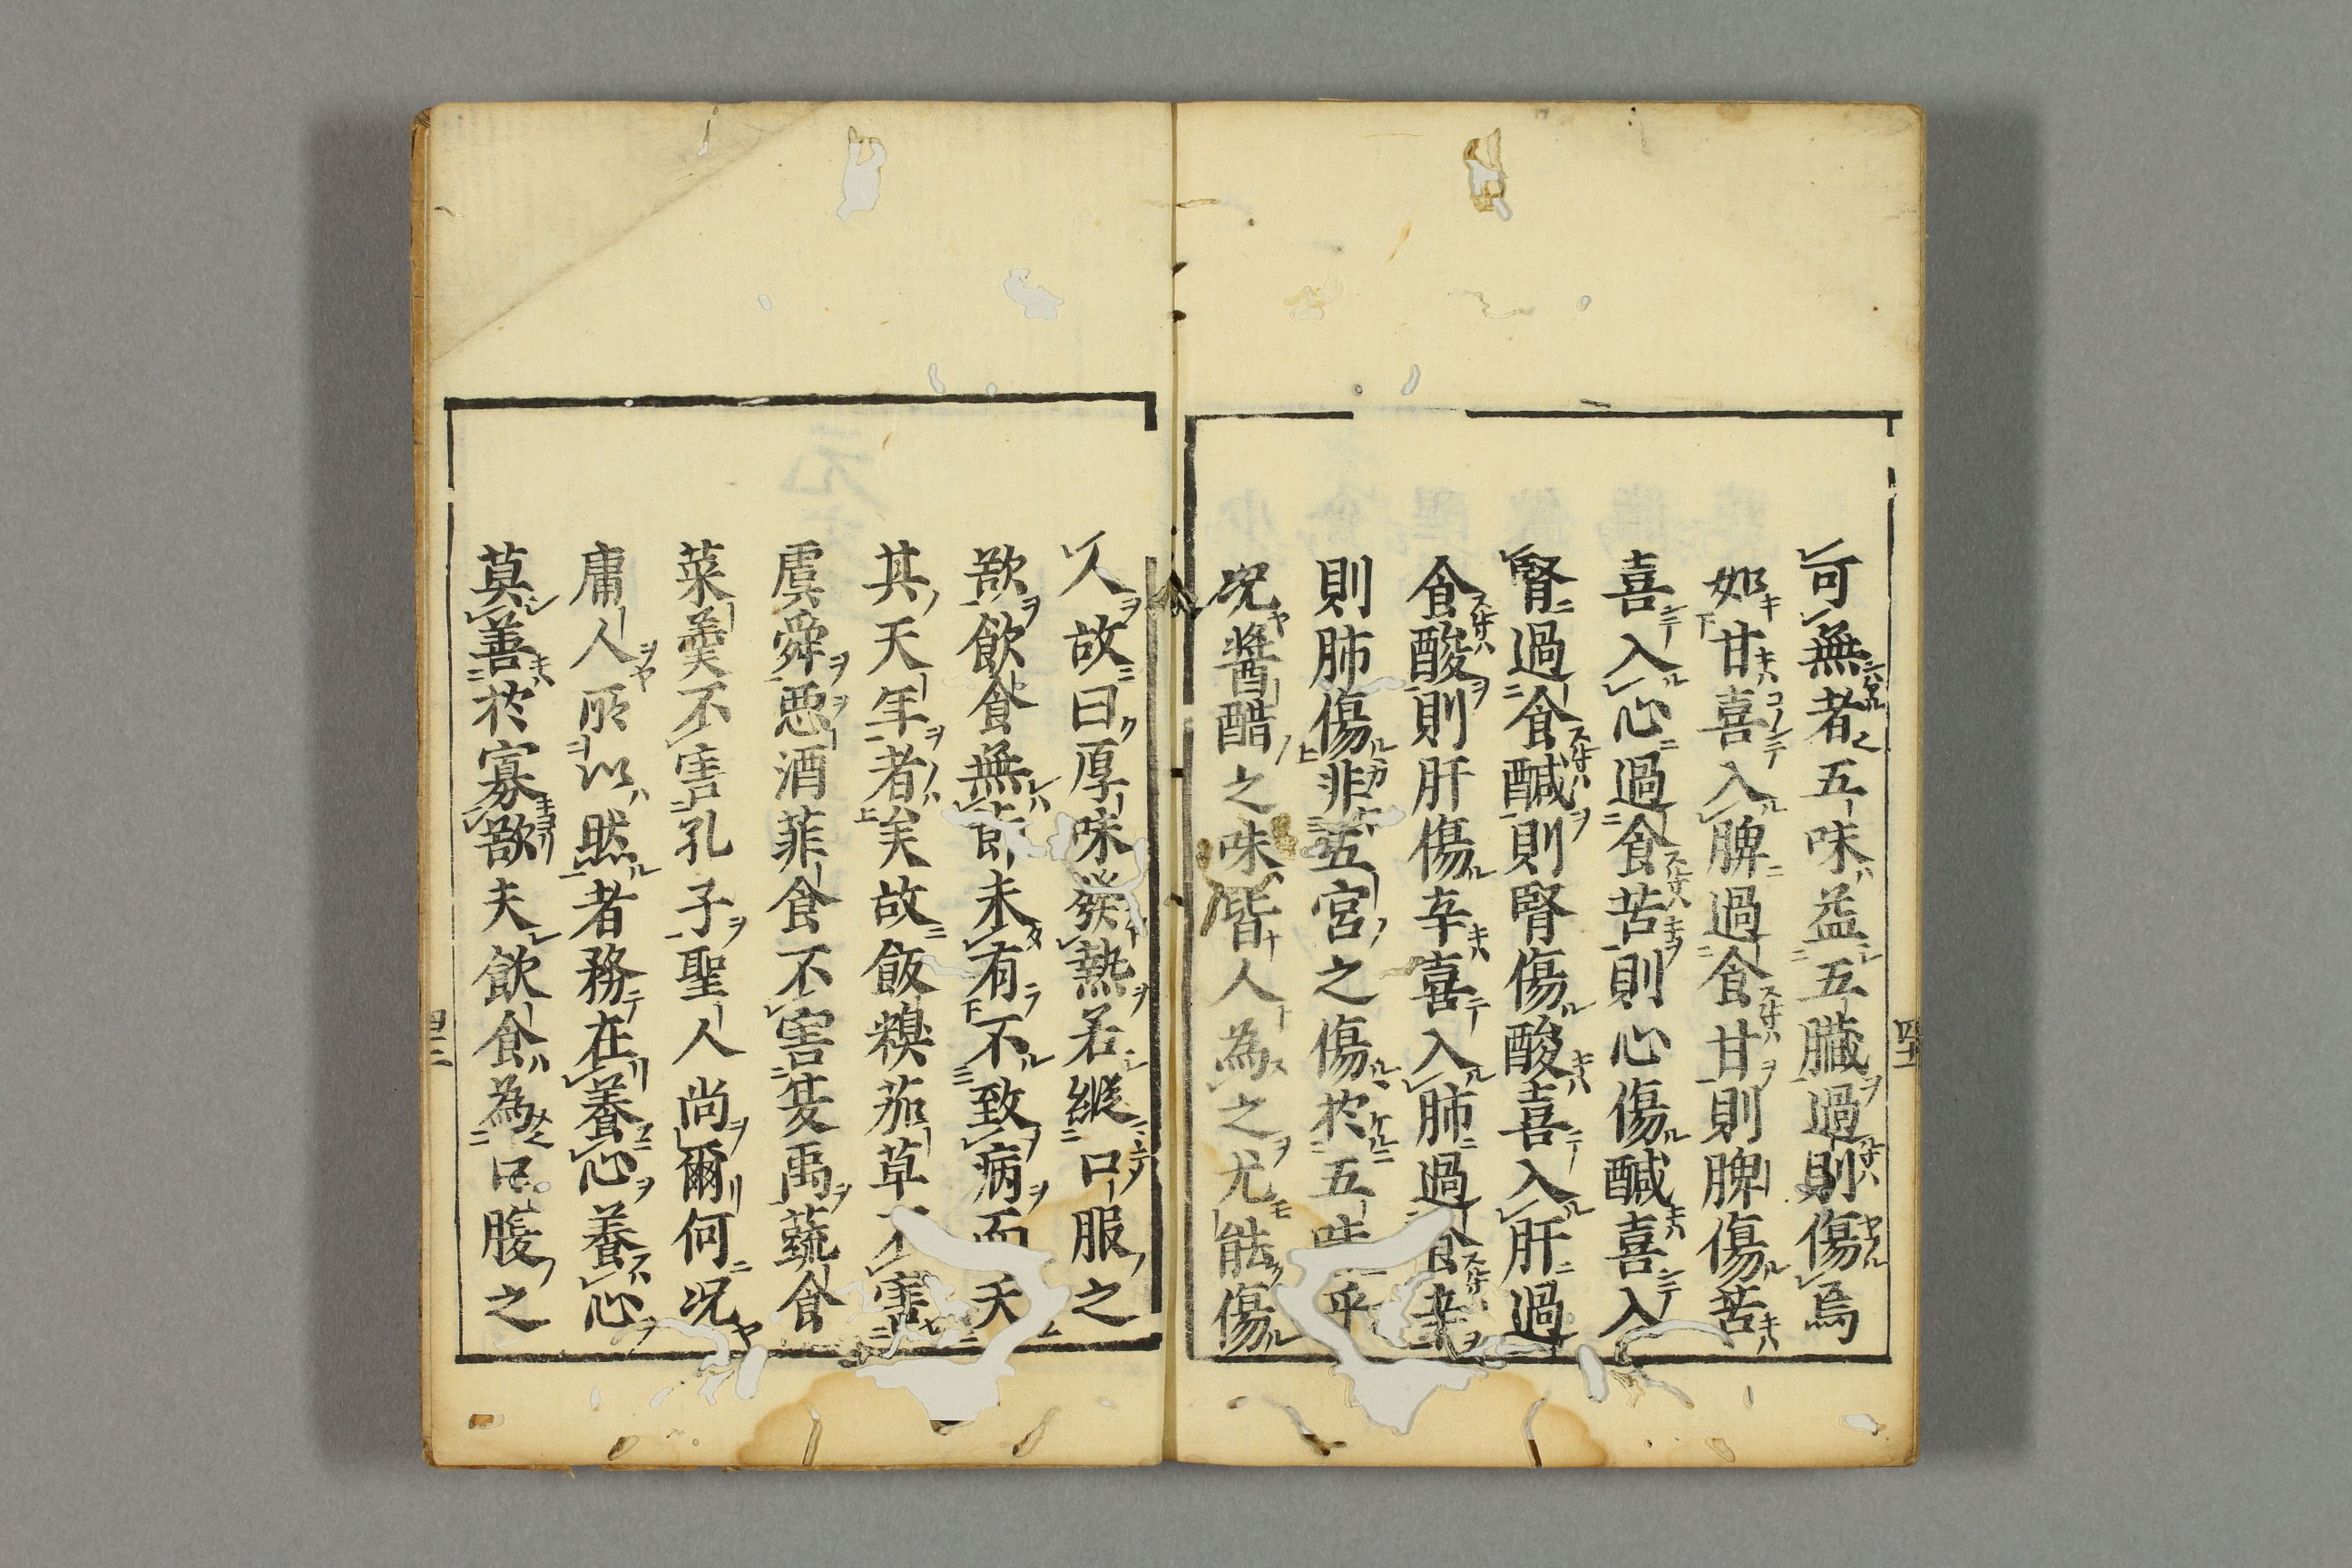 可無者五味益五臓過則傷焉
如甘喜入脾過食甘則脾傷苦
喜入心過食苦則心傷醎喜入
腎過食醎則腎傷酸喜入肝過
食酸則肝傷辛喜入肺過食辛
則肺傷非五宮之傷於五味乎
况醬醋之味皆人為之尤能傷
人故曰厚味發熱若縱口服之
欲飲食無節未有不致病而夭
其天年者矣故飯糗茹草不害
虞舜惡酒菲食不害夏禹蔬食
菜羹不害孔子聖人尚爾何况
庸人所以然者務在養心養心
莫善於寡欲夫飲食為口腹之